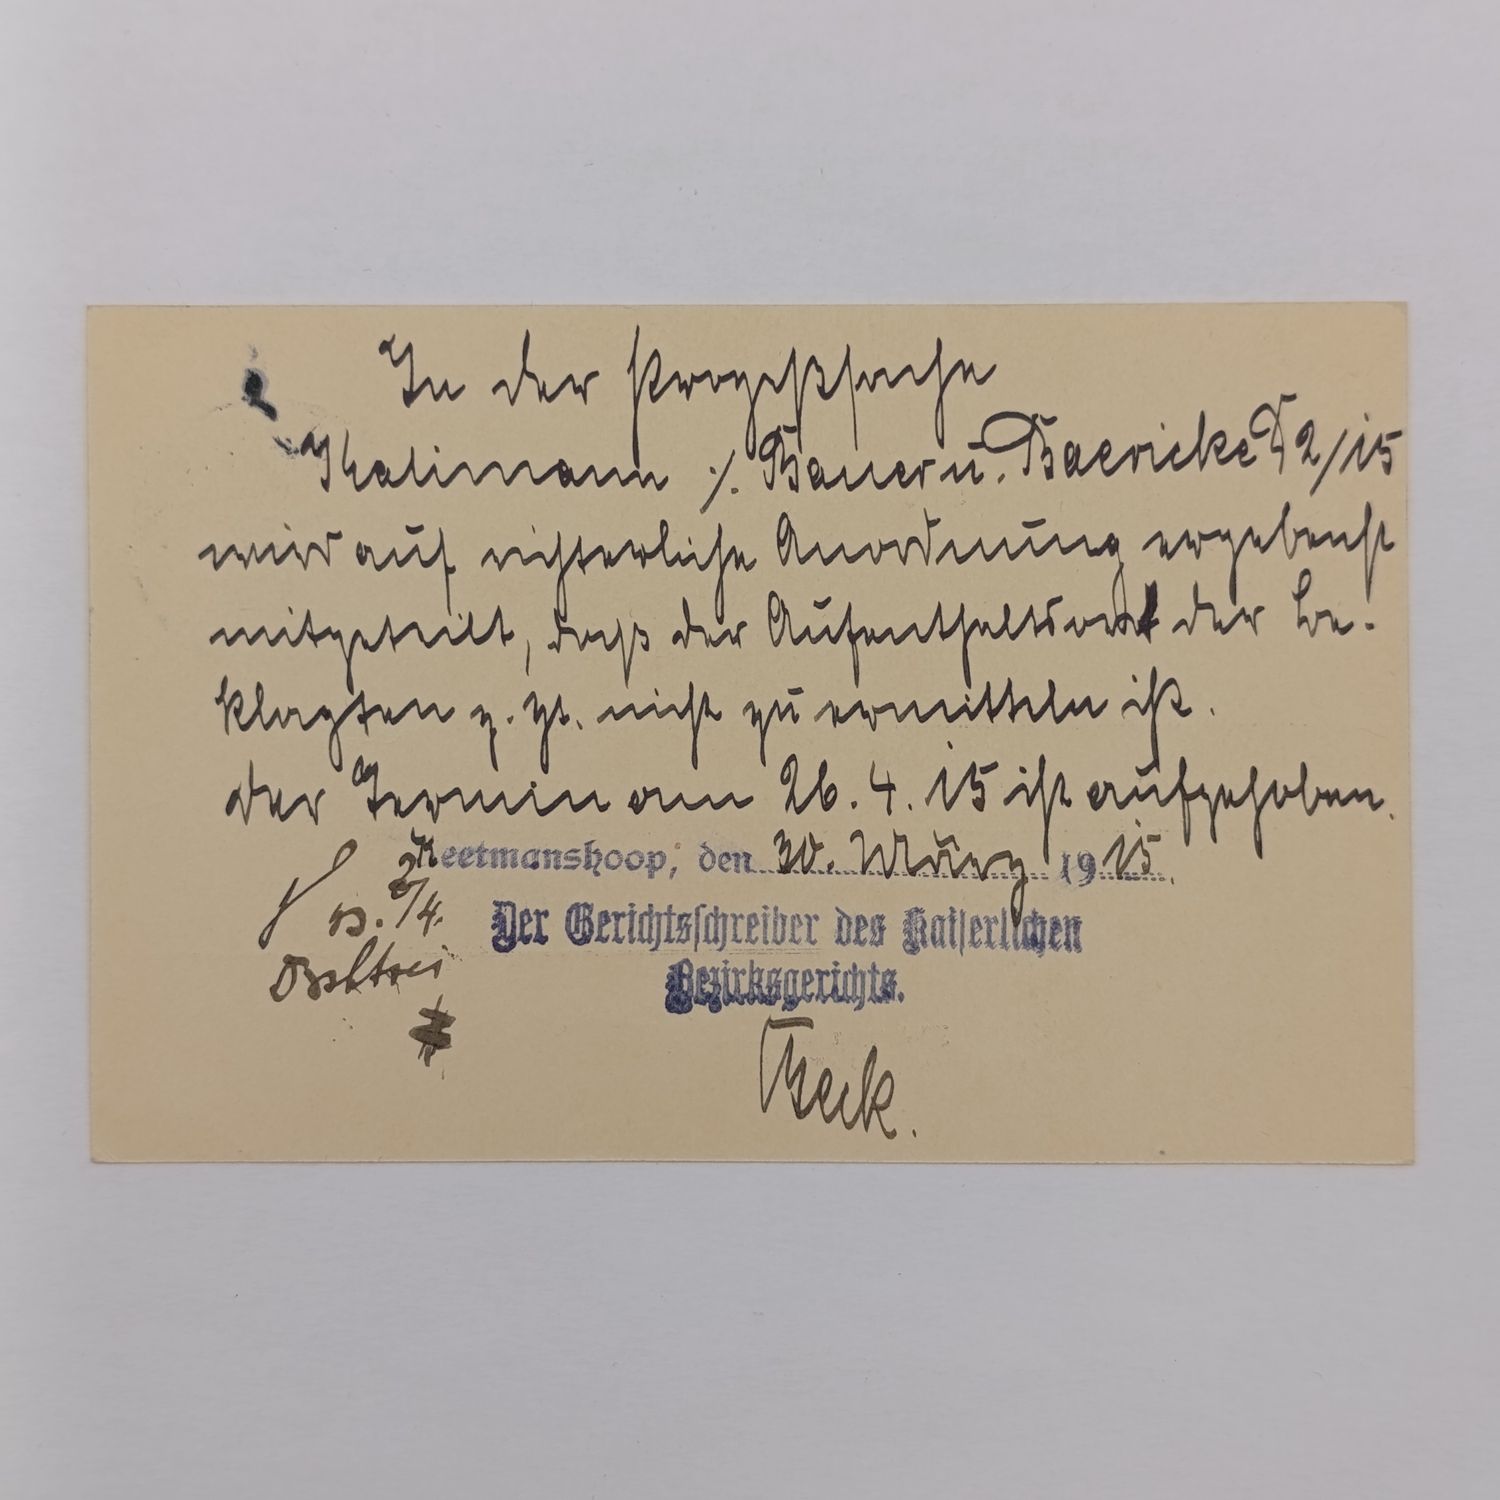 In der Prozeßsache
Kalimann ./. Bauer u. Baericke D 2/15
wird auf richterliche Anordnung ergebenst
mitgeteilt, daß der Aufenthaltsort der Be-
klagten z. Zt. nicht zu ermitteln ist.
Der Termin am 26. 4. 15 ist aufgehoben.
Keetmanshoop, den 30. März 1915.
Der Gerichtsschreiber des Kaiserlichen
Bezirksgerichts.
Beck.